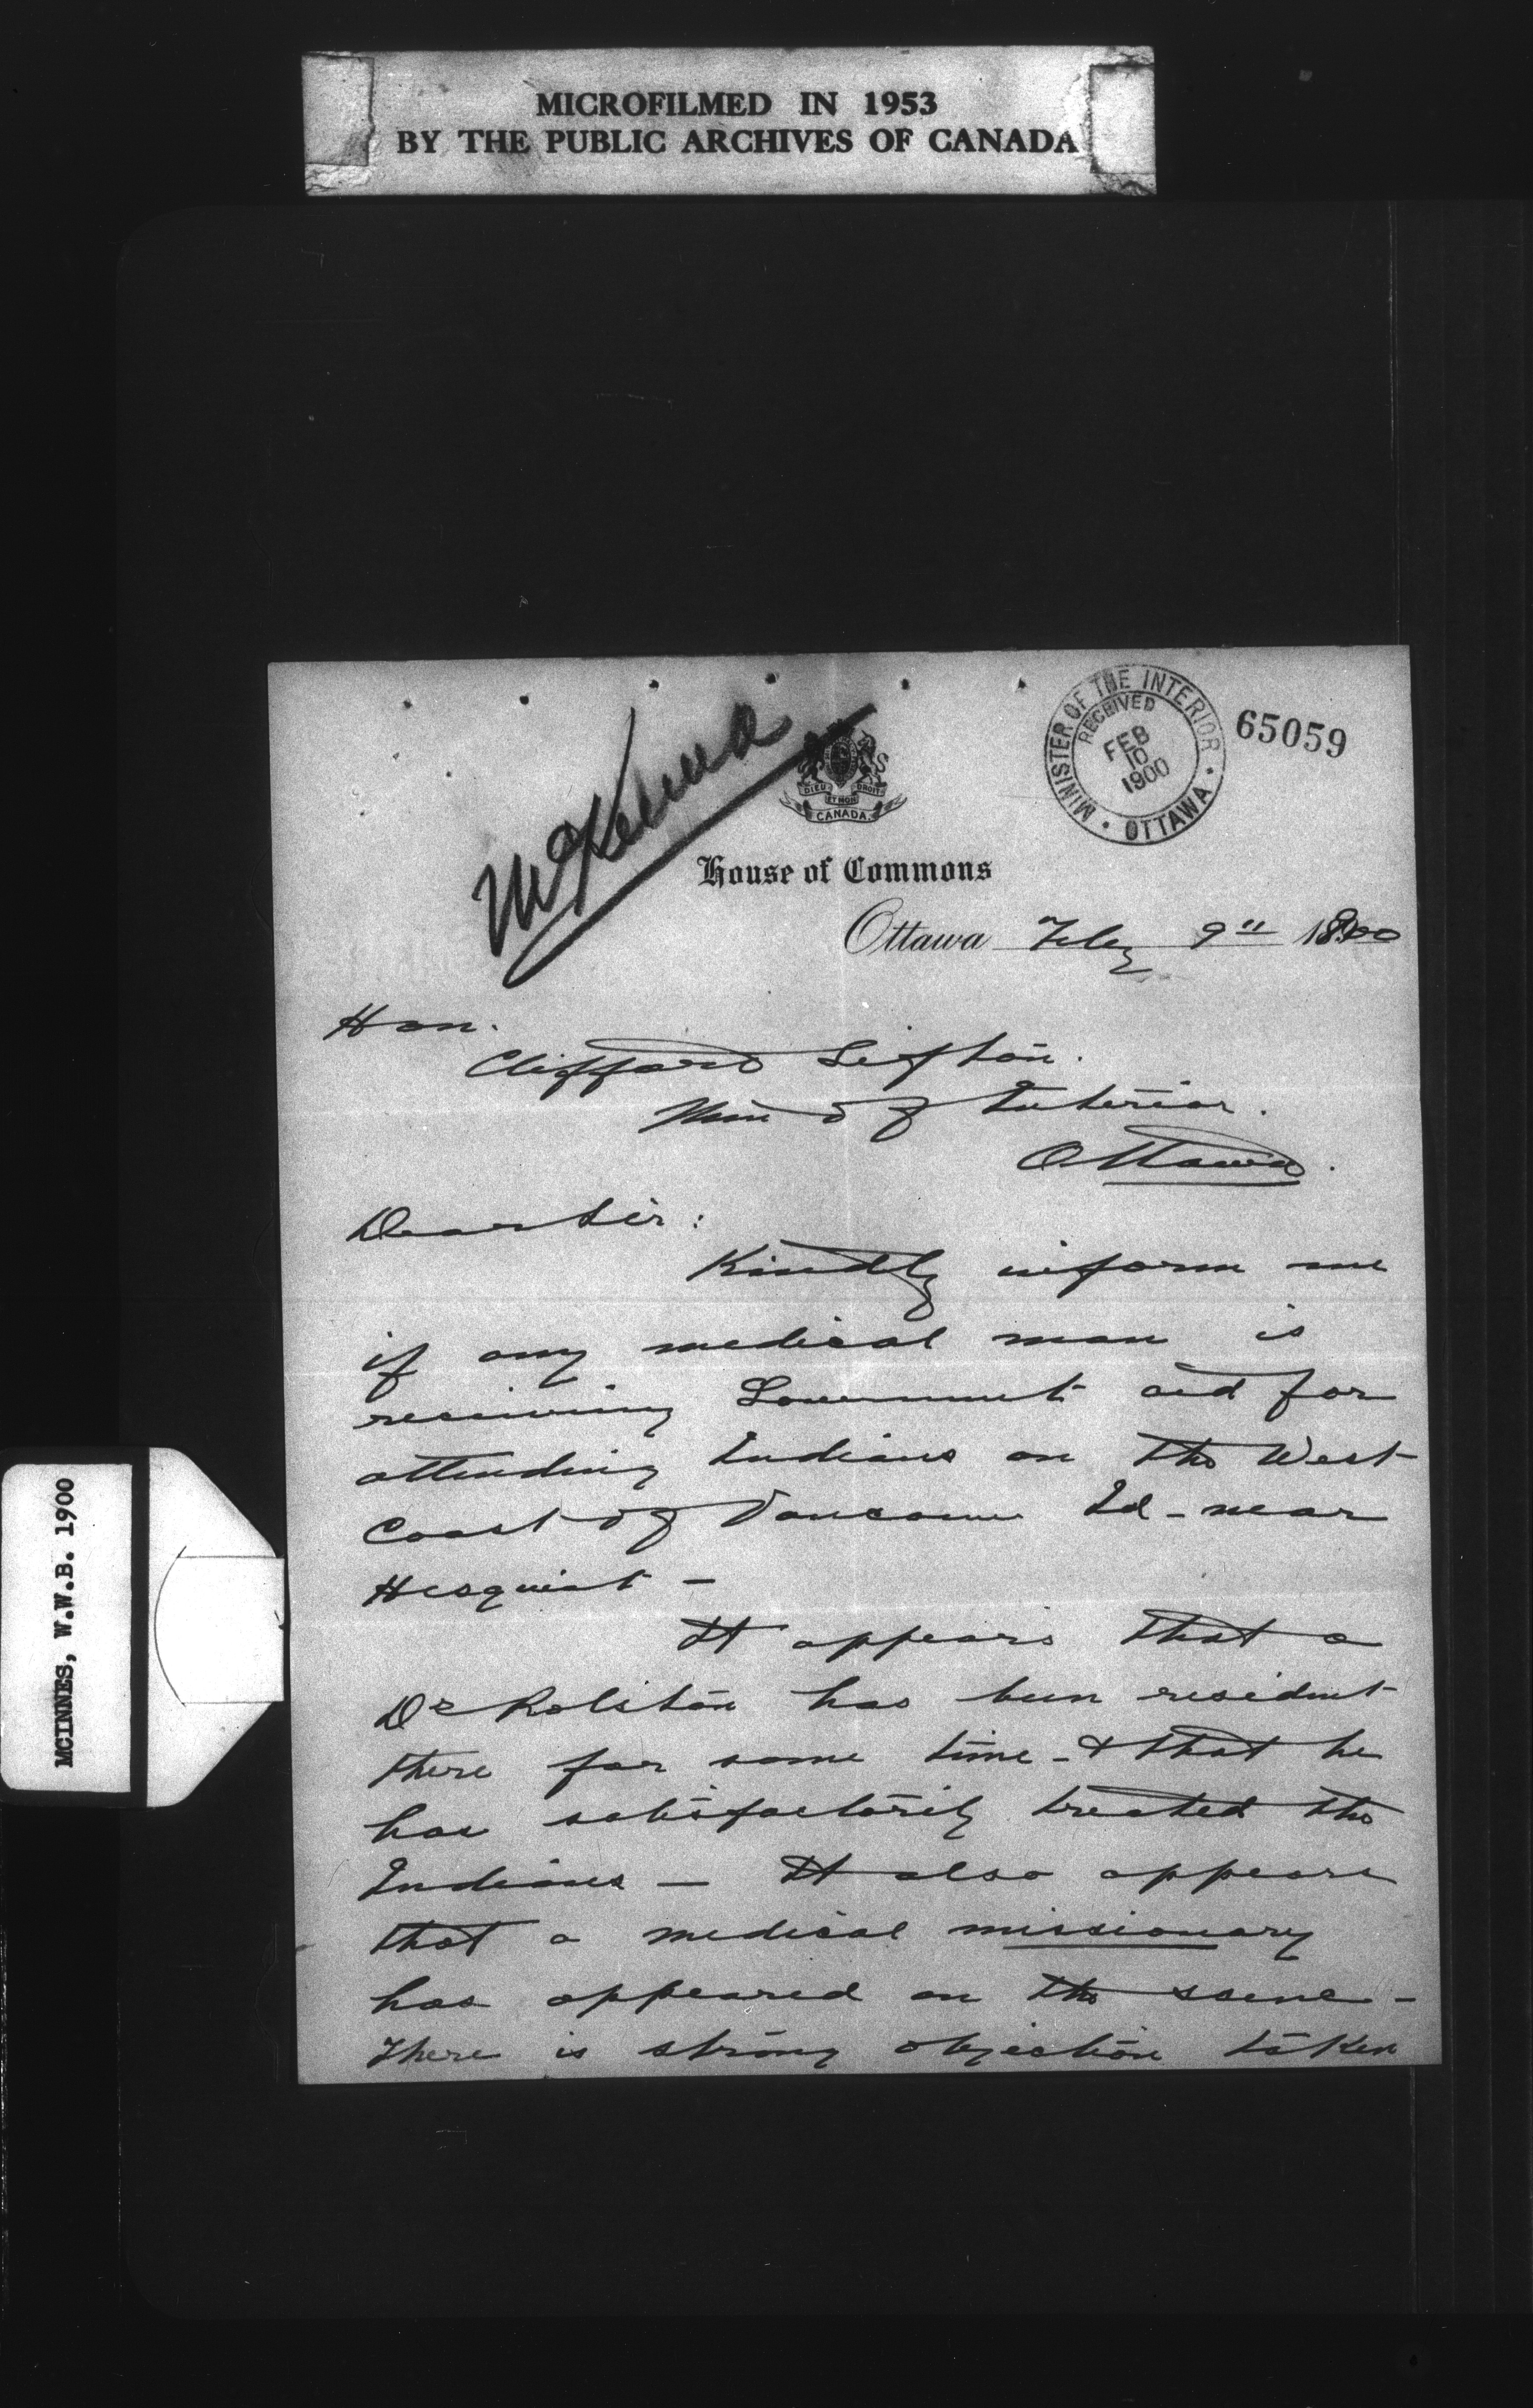 MICROFILMED IN 1953
BY THE PUBLIC ARCHIVES OF CANADA
MCINNES, W.W.B. 1900
McKenna
MINISTER OF THE INTERIOR
RECEIVED
FEB
10
1900
OTTAWA
65059
DIEU ET MON DROIT
CANADA
House of Commons
Ottawa Feby 9" 1900
Hon.
Clifford Sifton.
Min of Interior.
Ottawa.
Dear Sir:
Kindly inform me
if any medical man is
receiving Government aid for
attending Indians on the West
Coast of Vancouver Id - near
Hesquiat -
It appears that a
Dr Rolston has been resident
there for some time - & that he
has satisfactorily treated the
Indians - It also appears
that a medical missionary
has appeared on the scene -
There is strong objection taken